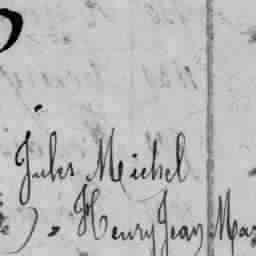 Jules Michel
Henry Jean Mar